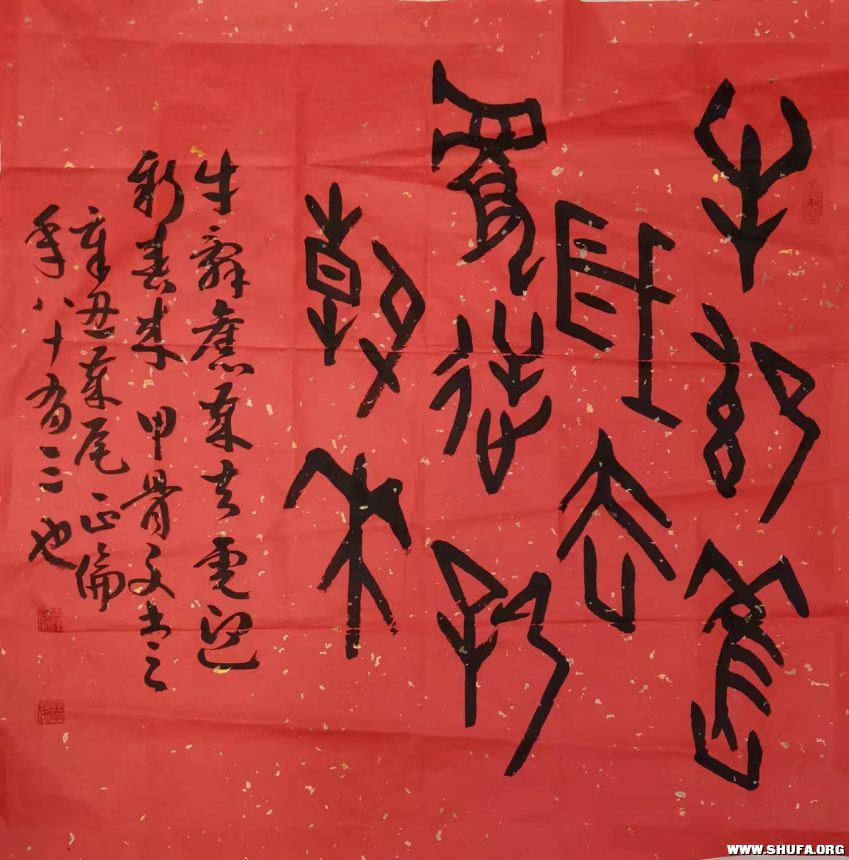 牛辭舊
歲去
虎迎新
春來
牛辭舊歲去虎迎
新春來 甲骨文書之
辛丑歲尾正倫
年八十有三也
WWW.SHUFA.ORG